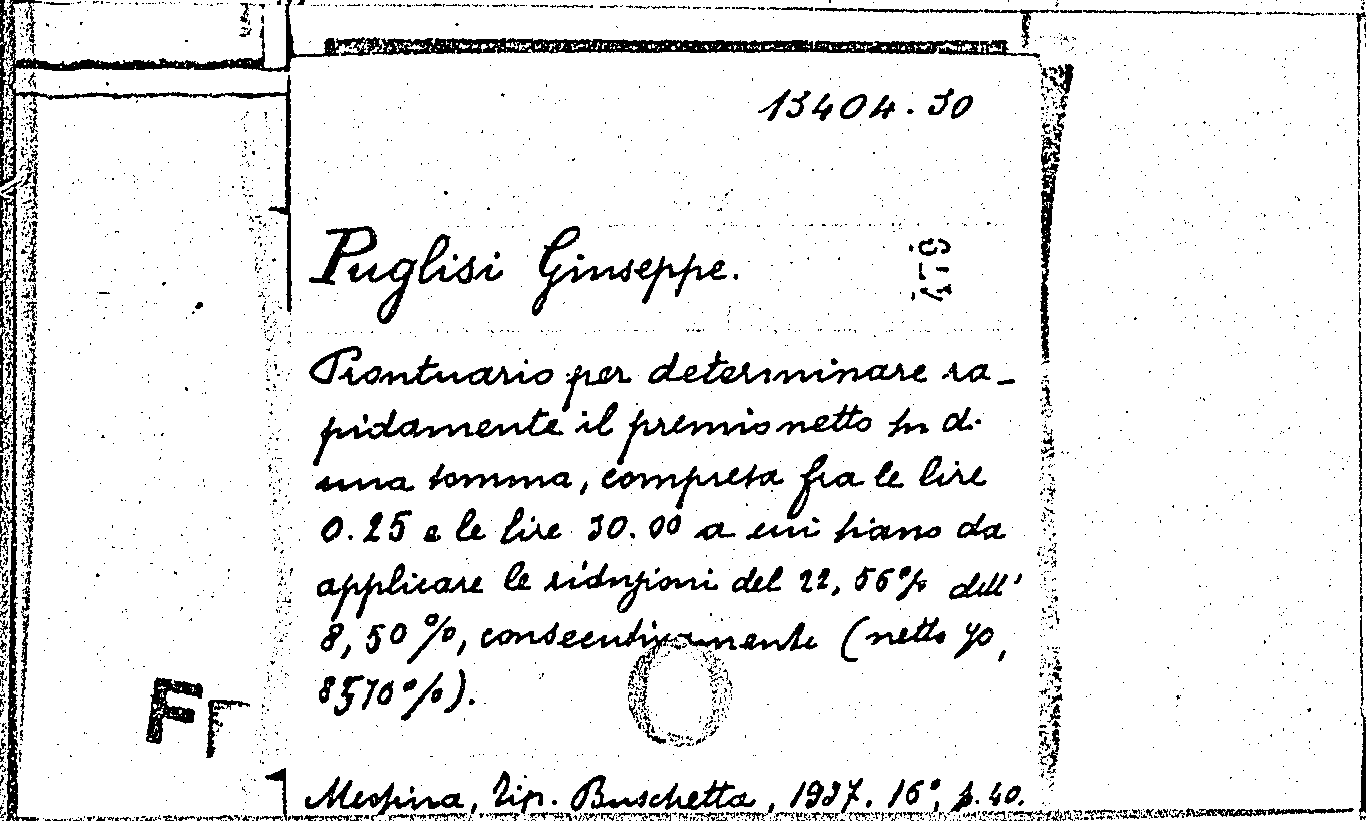 13404.30
Puglisi Giuseppe.
Prontuario per determinare ra-
pidamente il premio netto su di
una somma, compresa fra le lire
0.25 e le lire 30.00 a cui siano da
applicare le riduzioni del 22,56% dell'
8,50%, consecutivamente (netto 70,
8570%).
Messina, Tip. Buschetta, 1937. 16°, p. 40.